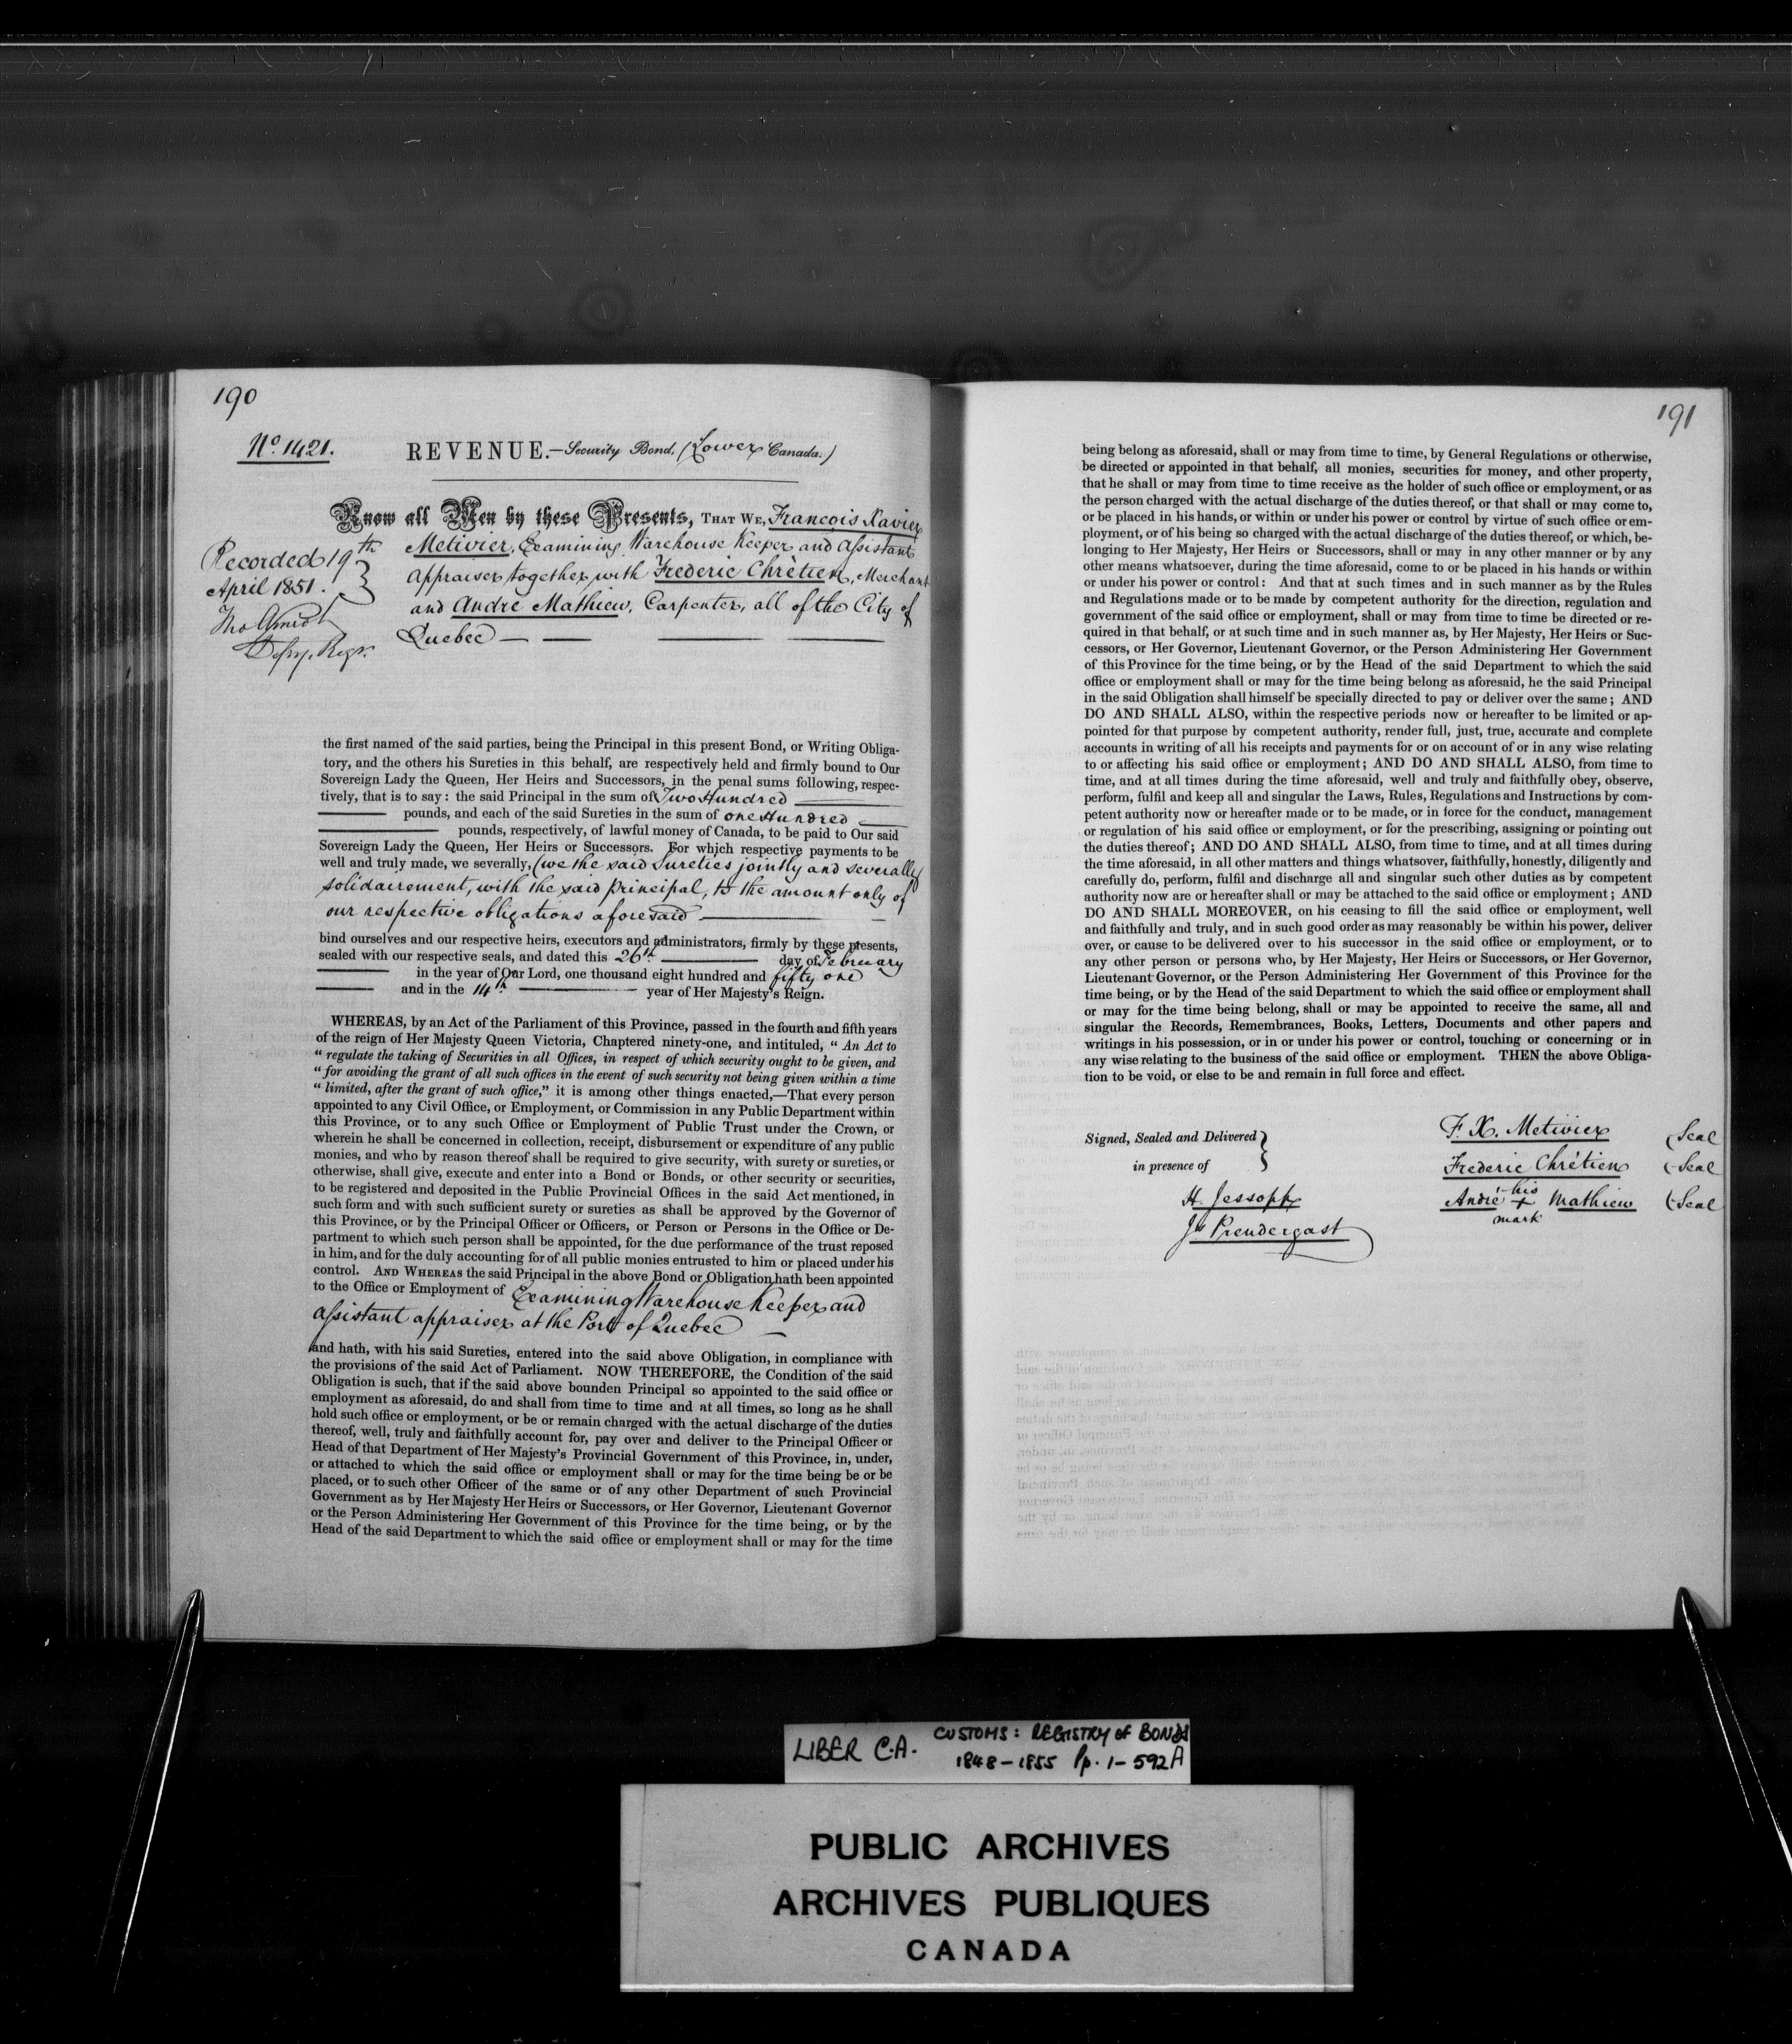 190
No. 1421.
REVENUE.—Security Bond. (Lower Canada.)
Know all Men by these Presents, THAT WE, François Xavier
Metivier, Examining Warehouse Keeper and Assistant
Appraiser together with Frederic Chrètien, Merchant
and Andre Mathieu, Carpenter, all of the City of
Quebec
Recorded 19th
April 1851.
Depy. Regr.
the first named of the said parties, being the Principal in this present Bond, or Writing Obliga-
tory, and the others his Sureties in this behalf, are respectively held and firmly bound to Our
Sovereign Lady the Queen, Her Heirs and Successors, in the penal sums following, respec-
tively, that is to say: the said Principal in the sum of Two Hundred
pounds, and each of the said Sureties in the sum of one Hundred
pounds, respectively, of lawful money of Canada, to be paid to Our said
Sovereign Lady the Queen, Her Heirs or Successors. For which respective payments to be
well and truly made, we severally, (we the said Sureties jointly and severally
solidairement, with the said principal, to the amount only of
our respective obligations aforesaid
bind ourselves and our respective heirs, executors and administrators, firmly by these presents,
sealed with our respective seals, and dated this 26th day of February
in the year of Our Lord, one thousand eight hundred and fifty one
and in the 14th year of Her Majesty's Reign.
WHEREAS, by an Act of the Parliament of this Province, passed in the fourth and fifth years
of the reign of Her Majesty Queen Victoria, Chaptered ninety-one, and intituled, “ An Act to
“ regulate the taking of Securities in all Offices, in respect of which security ought to be given, and
“ for avoiding the grant of all such offices in the event of such security not being given within a time
“ limited, after the grant of such office,” it is among other things enacted,—That every person
appointed to any Civil Office, or Employment, or Commission in any Public Department within
this Province, or to any such Office or Employment of Public Trust under the Crown, or
wherein he shall be concerned in collection, receipt, disbursement or expenditure of any public
monies, and who by reason thereof shall be required to give security, with surety or sureties, or
otherwise, shall give, execute and enter into a Bond or Bonds, or other security or securities,
to be registered and deposited in the Public Provincial Offices in the said Act mentioned, in
such form and with such sufficient surety or sureties as shall be approved by the Governor of
this Province, or by the Principal Officer or Officers, or Person or Persons in the Office or De-
partment to which such person shall be appointed, for the due performance of the trust reposed
in him, and for the duly accounting for of all public monies entrusted to him or placed under his
control. AND WHEREAS the said Principal in the above Bond or Obligation hath been appointed
to the Office or Employment of Examining Warehouse Keeper and
Assistant appraiser at the Port of Quebec
and hath, with his said Sureties, entered into the said above Obligation, in compliance with
the provisions of the said Act of Parliament. NOW THEREFORE, the Condition of the said
Obligation is such, that if the said above bounden Principal so appointed to the said office or
employment as aforesaid, do and shall from time to time and at all times, so long as he shall
hold such office or employment, or be or remain charged with the actual discharge of the duties
thereof, well, truly and faithfully account for, pay over and deliver to the Principal Officer or
Head of that Department of Her Majesty's Provincial Government of this Province, in, under,
or attached to which the said office or employment shall or may for the time being be or be
placed, or to such other Officer of the same or of any other Department of such Provincial
Government as by Her Majesty Her Heirs or Successors, or Her Governor, Lieutenant Governor
or the Person Administering Her Government of this Province for the time being, or by the
Head of the said Department to which the said office or employment shall or may for the time
191
being belong as aforesaid, shall or may from time to time, by General Regulations or otherwise,
be directed or appointed in that behalf, all monies, securities for money, and other property,
that he shall or may from time to time receive as the holder of such office or employment, or as
the person charged with the actual discharge of the duties thereof, or that shall or may come to,
or be placed in his hands, or within or under his power or control by virtue of such office or em-
ployment, or of his being so charged with the actual discharge of the duties thereof, or which, be-
longing to Her Majesty, Her Heirs or Successors, shall or may in any other manner or by any
other means whatsoever, during the time aforesaid, come to or be placed in his hands or within
or under his power or control: And that at such times and in such manner as by the Rules
and Regulations made or to be made by competent authority for the direction, regulation and
government of the said office or employment, shall or may from time to time be directed or re-
quired in that behalf, or at such time and in such manner as, by Her Majesty, Her Heirs or Suc-
cessors, or Her Governor, Lieutenant Governor, or the Person Administering Her Government
of this Province for the time being, or by the Head of the said Department to which the said
office or employment shall or may for the time being belong as aforesaid, he the said Principal
in the said Obligation shall himself be specially directed to pay or deliver over the same; AND
DO AND SHALL ALSO, within the respective periods now or hereafter to be limited or ap-
pointed for that purpose by competent authority, render full, just, true, accurate and complete
accounts in writing of all his receipts and payments for or on account of or in any wise relating
to or affecting his said office or employment; AND DO AND SHALL ALSO, from time to
time, and at all times during the time aforesaid, well and truly and faithfully obey, observe,
perform, fulfil and keep all and singular the Laws, Rules, Regulations and Instructions by com-
petent authority now or hereafter made or to be made, or in force for the conduct, management
or regulation of his said office or employment, or for the prescribing, assigning or pointing out
the duties thereof; AND DO AND SHALL ALSO, from time to time, and at all times during
the time aforesaid, in all other matters and things whatsover, faithfully, honestly, diligently and
carefully do, perform, fulfil and discharge all and singular such other duties as by competent
authority now are or hereafter shall or may be attached to the said office or employment; AND
DO AND SHALL MOREOVER, on his ceasing to fill the said office or employment, well
and faithfully and truly, and in such good order as may reasonably be within his power, deliver
over, or cause to be delivered over to his successor in the said office or employment, or to
any other person or persons who, by Her Majesty, Her Heirs or Successors, or Her Governor,
Lieutenant Governor, or the Person Administering Her Government of this Province for the
time being, or by the Head of the said Department to which the said office or employment shall
or may for the time being belong, shall or may be appointed to receive the same, all and
singular the Records, Remembrances, Books, Letters, Documents and other papers and
writings in his possession, or in or under his power or control, touching or concerning or in
any wise relating to the business of the said office or employment. THEN the above Obliga-
tion to be void, or else to be and remain in full force and effect.
Signed, Sealed and Delivered
in presence of
H. Jessopp
Js Prendergast
F. X. Metivier (Seal
Frederic Chrétien (Seal
André his + mark Mathieu (Seal
LIBER C.A. CUSTOMS: REGISTRY of BONDS
1848-1855 Pp. 1-592A
PUBLIC ARCHIVES
ARCHIVES PUBLIQUES
CANADA